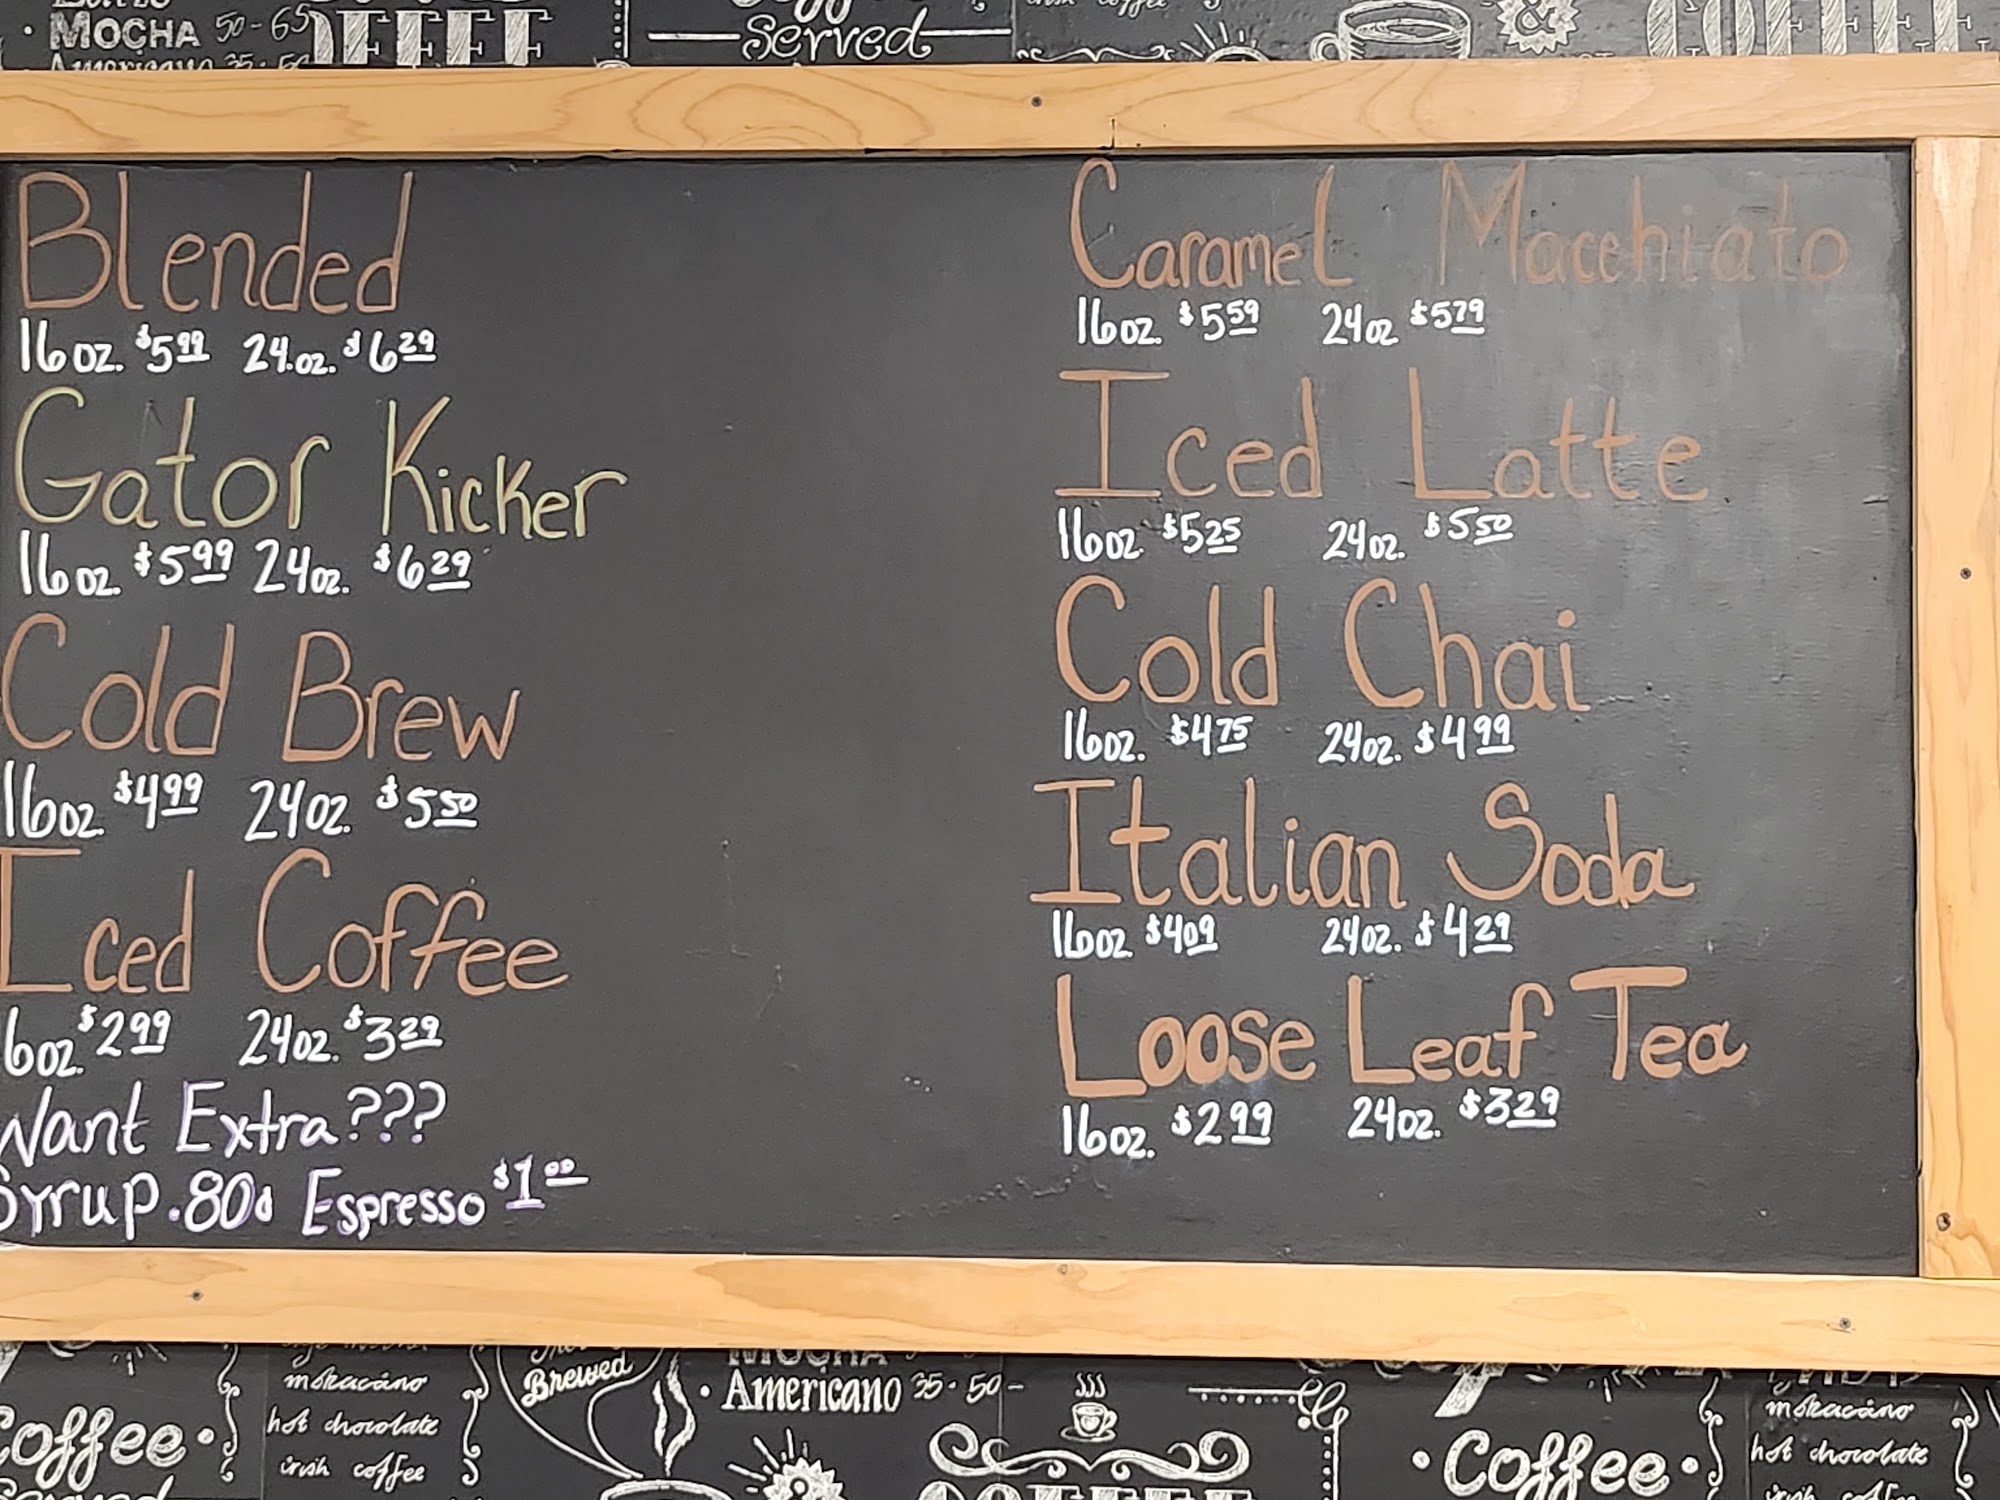 MOCHA 50-65
Served
Blended
16oz. $5.99 24.oz. $6.29
Gator Kicker
16oz. $5.99 24oz. $6.29
Cold Brew
16oz. $4.99 24oz. $5.50
Iced Coffee
6oz. $2.99 24oz. $3.29
Want Extra???
Syrup .80¢ Espresso $1.00
Caramel Macchiato
16oz. $5.59 24oz $5.79
Iced Latte
16oz. $5.25 24oz. $5.50
Cold Chai
16oz. $4.75 24oz. $4.99
Italian Soda
16oz $4.09 24oz. $4.29
Loose Leaf Tea
16oz. $2.99 24oz. $3.29
Coffee
mokacáno
hot chocolate
irish coffee
Brewed
MOCHA
Americano 35-50-
Coffee
mokacáno
hot chocolate
irish coffee